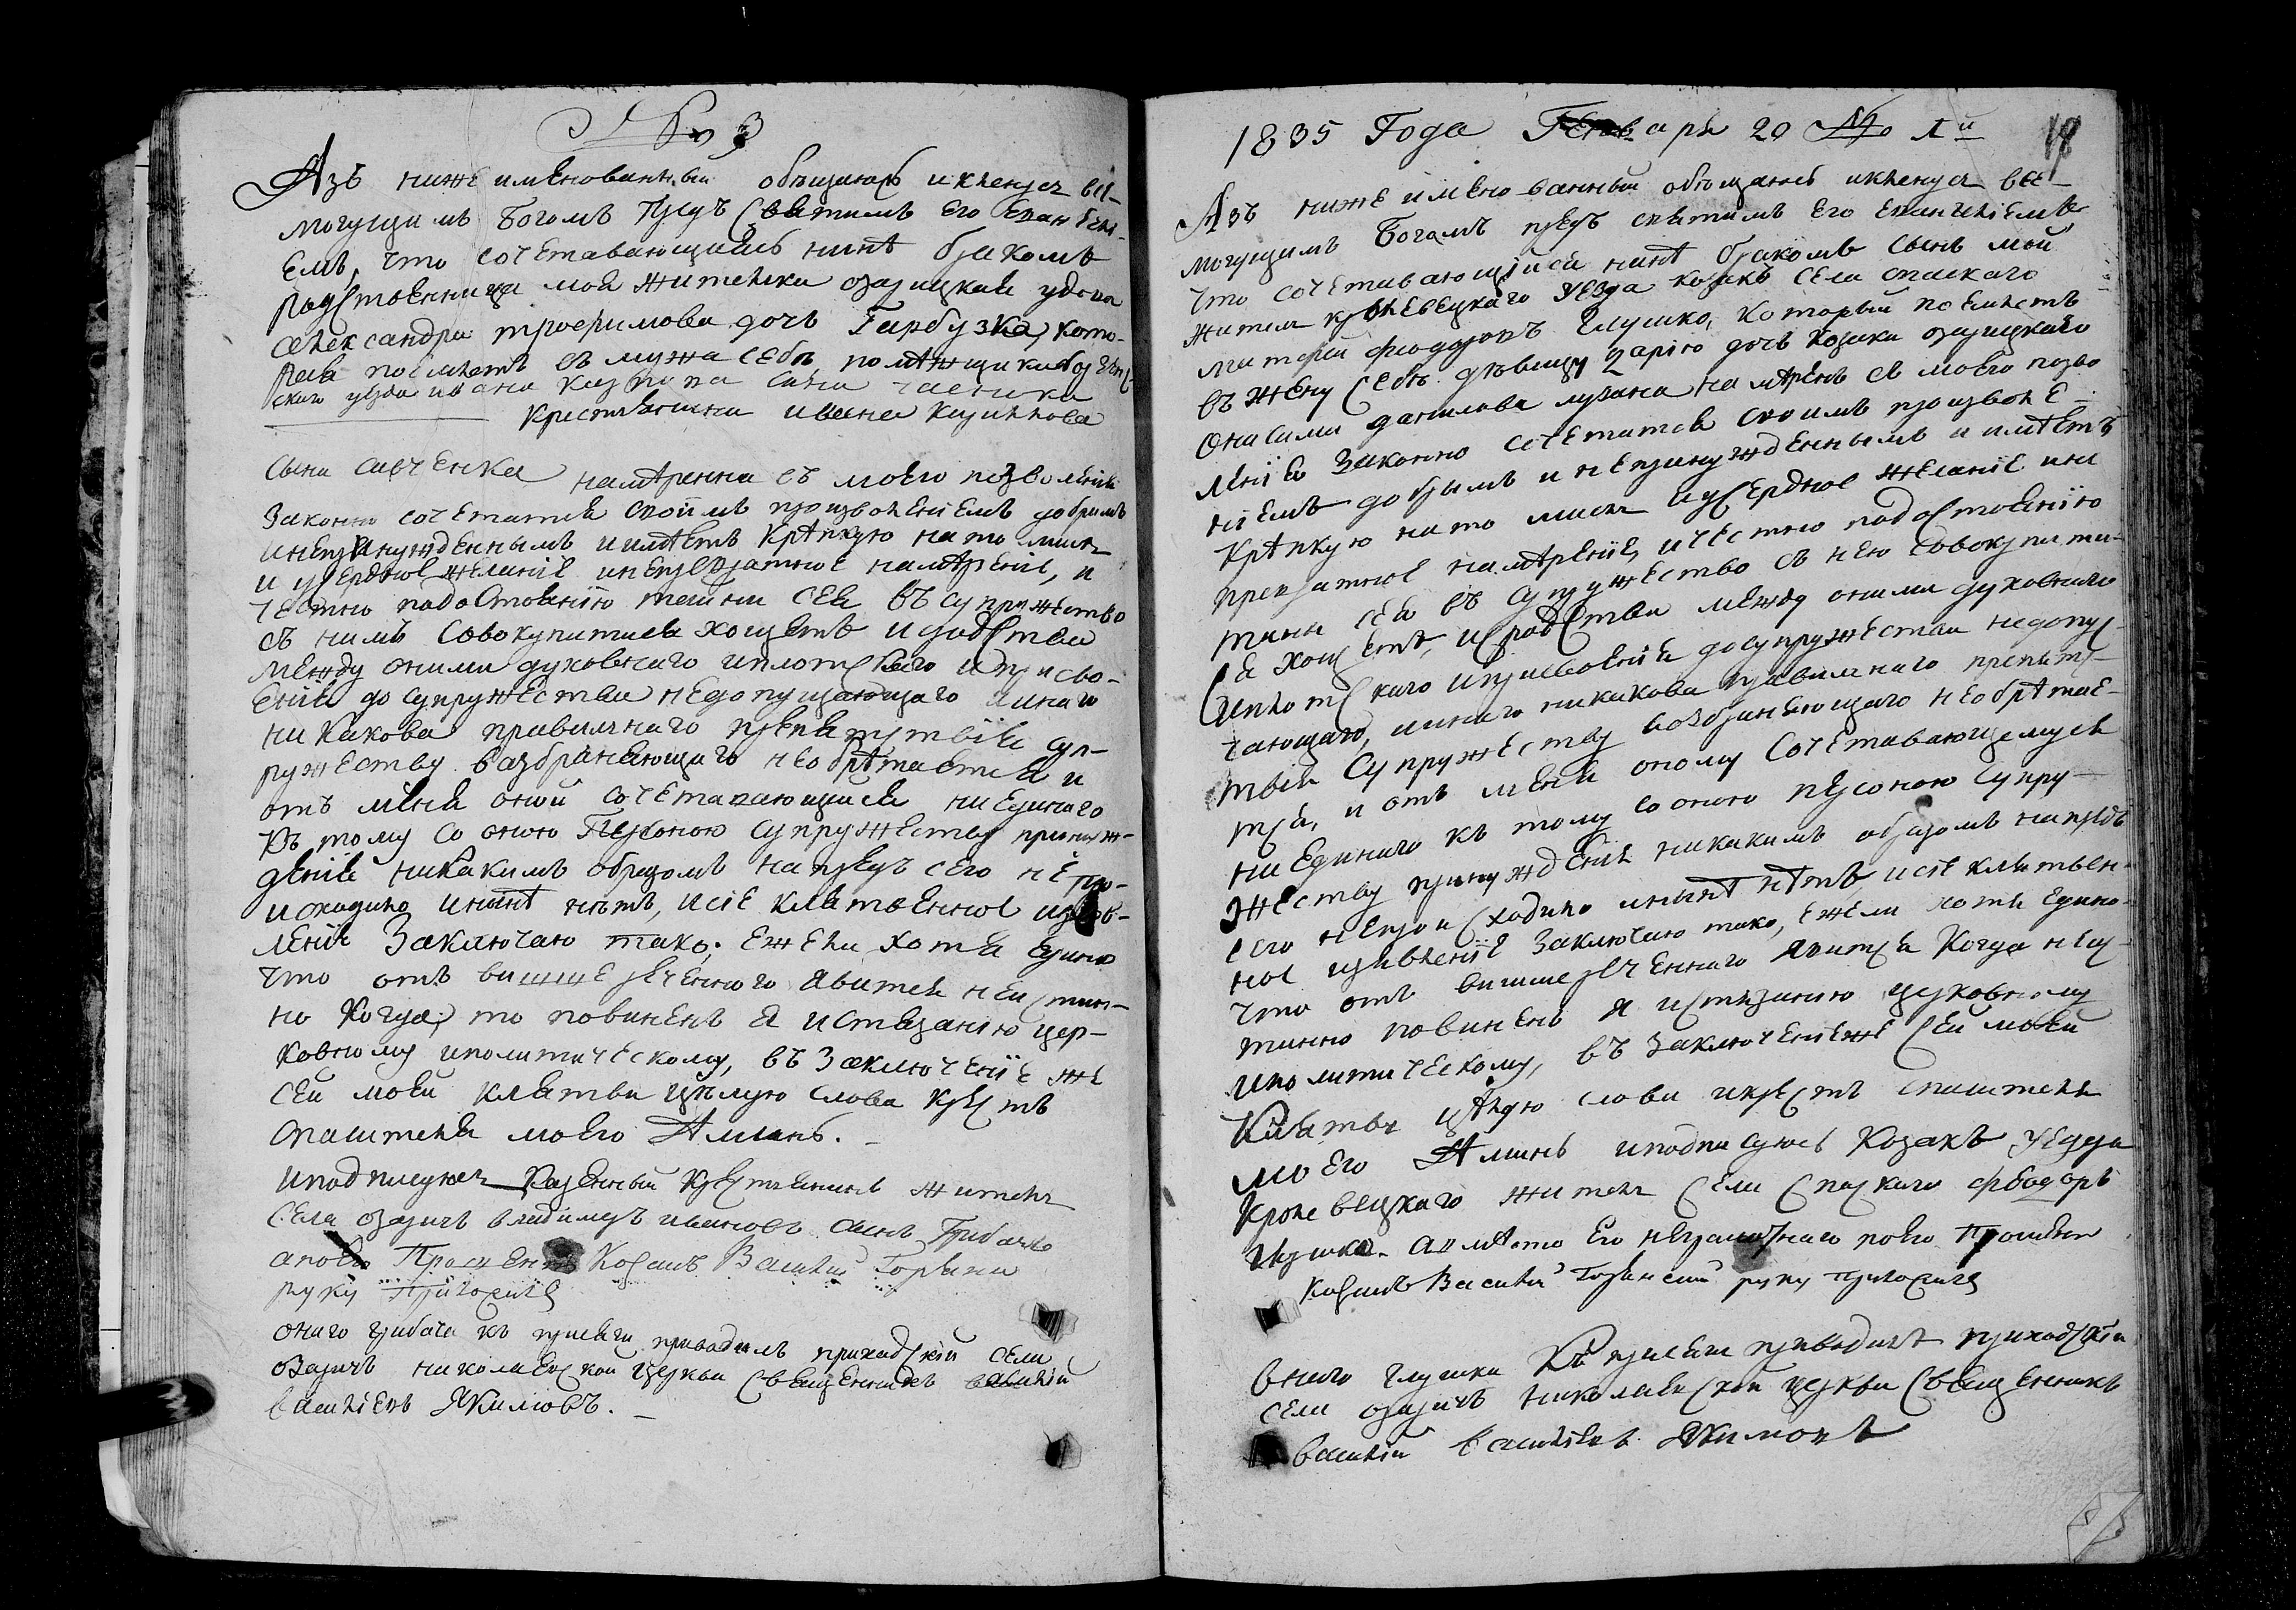 № 3
Азъ нижеименованный обещаюсь и кленуся все-
могущимъ Богомъ предъ святимъ Его Евангели-
емъ, что сочетавающаясь нинѣ бракомъ
родственница моя жителка озарицкая удова
александра трофимова дочь Гарбузка, кото-
рая поемлетъ въ мужа себѣ помѣщика
ского уезда ивана сина
крестянина ивана
Сына савченка намѣренна съ моего позволения
Законно сочетатся своимъ произволениемъ добримъ
и непринужденнымъ и имѣетъ крѣпкую на то мисль
и усердное желание и непревратное намѣрение, и
честно подостоянїю тайни сея въ супружество
съ нимъ совокупитися хощетъ и родства
между оними духовнаго и плотскаго и присво-
ения до супружества недопущающаго и инаго
никакова правилнаго препятствїя суп-
ружеству возбраняющаго необрѣтается и
отъ меня оной сочетавающийся ни единаго
къ тому со оною Персоною супружеству принуж-
дения никакимъ образомъ напредъ сего не про-
исходило и нинѣ нѣтъ, и сїе клятвенное изяв-
ление Заключаю тако: ежели хотя едино
что отъ вишшереченного явится неистин-
но когда, то повиненъ я истязанию цер-
ковному и политическому, въ заключенїе же
сей моей клятви цѣлую слова и крестъ
спасителя моего Аминь. –
и подписуюся Казенный крестянинъ житель
Села озаричъ владимиръ ивановъ синъ Грибачко
а по его Прошению Козакъ Василий
руку Приложилъ
онаго грибача къ присяги приводилъ приходский села
озаричъ николаевской церкви священникъ василий
василиевъ Якимовъ. –
1835 Года Генваря 20 № 1й
18
Азъ нижеименованный обещаюсь и кленуся все-
могущимъ Богомъ предъ святимъ Его евангелиемъ
что сочетавающийся нинѣ бракомъ синъ мой
житель кролевецкаго уезда козакъ села спаскаго
феодоровъ Глушко, который поемлетъ
въ жену себѣ дѣвицу дарию дочь козака озарицкаго
онисима данилова намѣренъ съ моего позво
ленїя Законно сочетатся своимъ произволе-
ниемъ добримъ и непринужденнымъ и имѣетъ
крѣпкую на то мисль и усердное желанїе и не
превратное намѣренїе, и честно подостоянїю
тайни сея въ супружество съ нею совокупити-
ся хощетъ, и родства между оними духовнаго
и плотскаго и присвоения до супружества недопу-
щающаго, и инаго никакова правилнаго препятс-
твия Супружеству возбраняющаго необрѣтае-
тся, и отъ меня оному сочетавающемуся
ни единаго къ тому со оною персоною супру-
жеству принуждения никакимъ образомъ напредъ
сего не происходило и нынѣ нѣтъ, и сїе клятвен-
ное изявленїе Заключаю тако, ежели хотя едино
что отъ вишше реченнаго явится когда неис-
тинно повиненъ я истязанию церковному
и политическому, въ заключениеже сей моей
Клятви цѣлую слова и крестъ спасителя
моего Аминь и подписуюсь Козакъ уезда
Кролевецкаго житель Села Спаскаго феодоръ
Глушко. а вмѣсто его неграмотнаго по его Прошению
Козакъ Василий руку приложилъ
Онаго глушка къ присяги приводилъ приходский
села озаричъ николаевской церкви священникъ
василий василиевъ Якимовъ